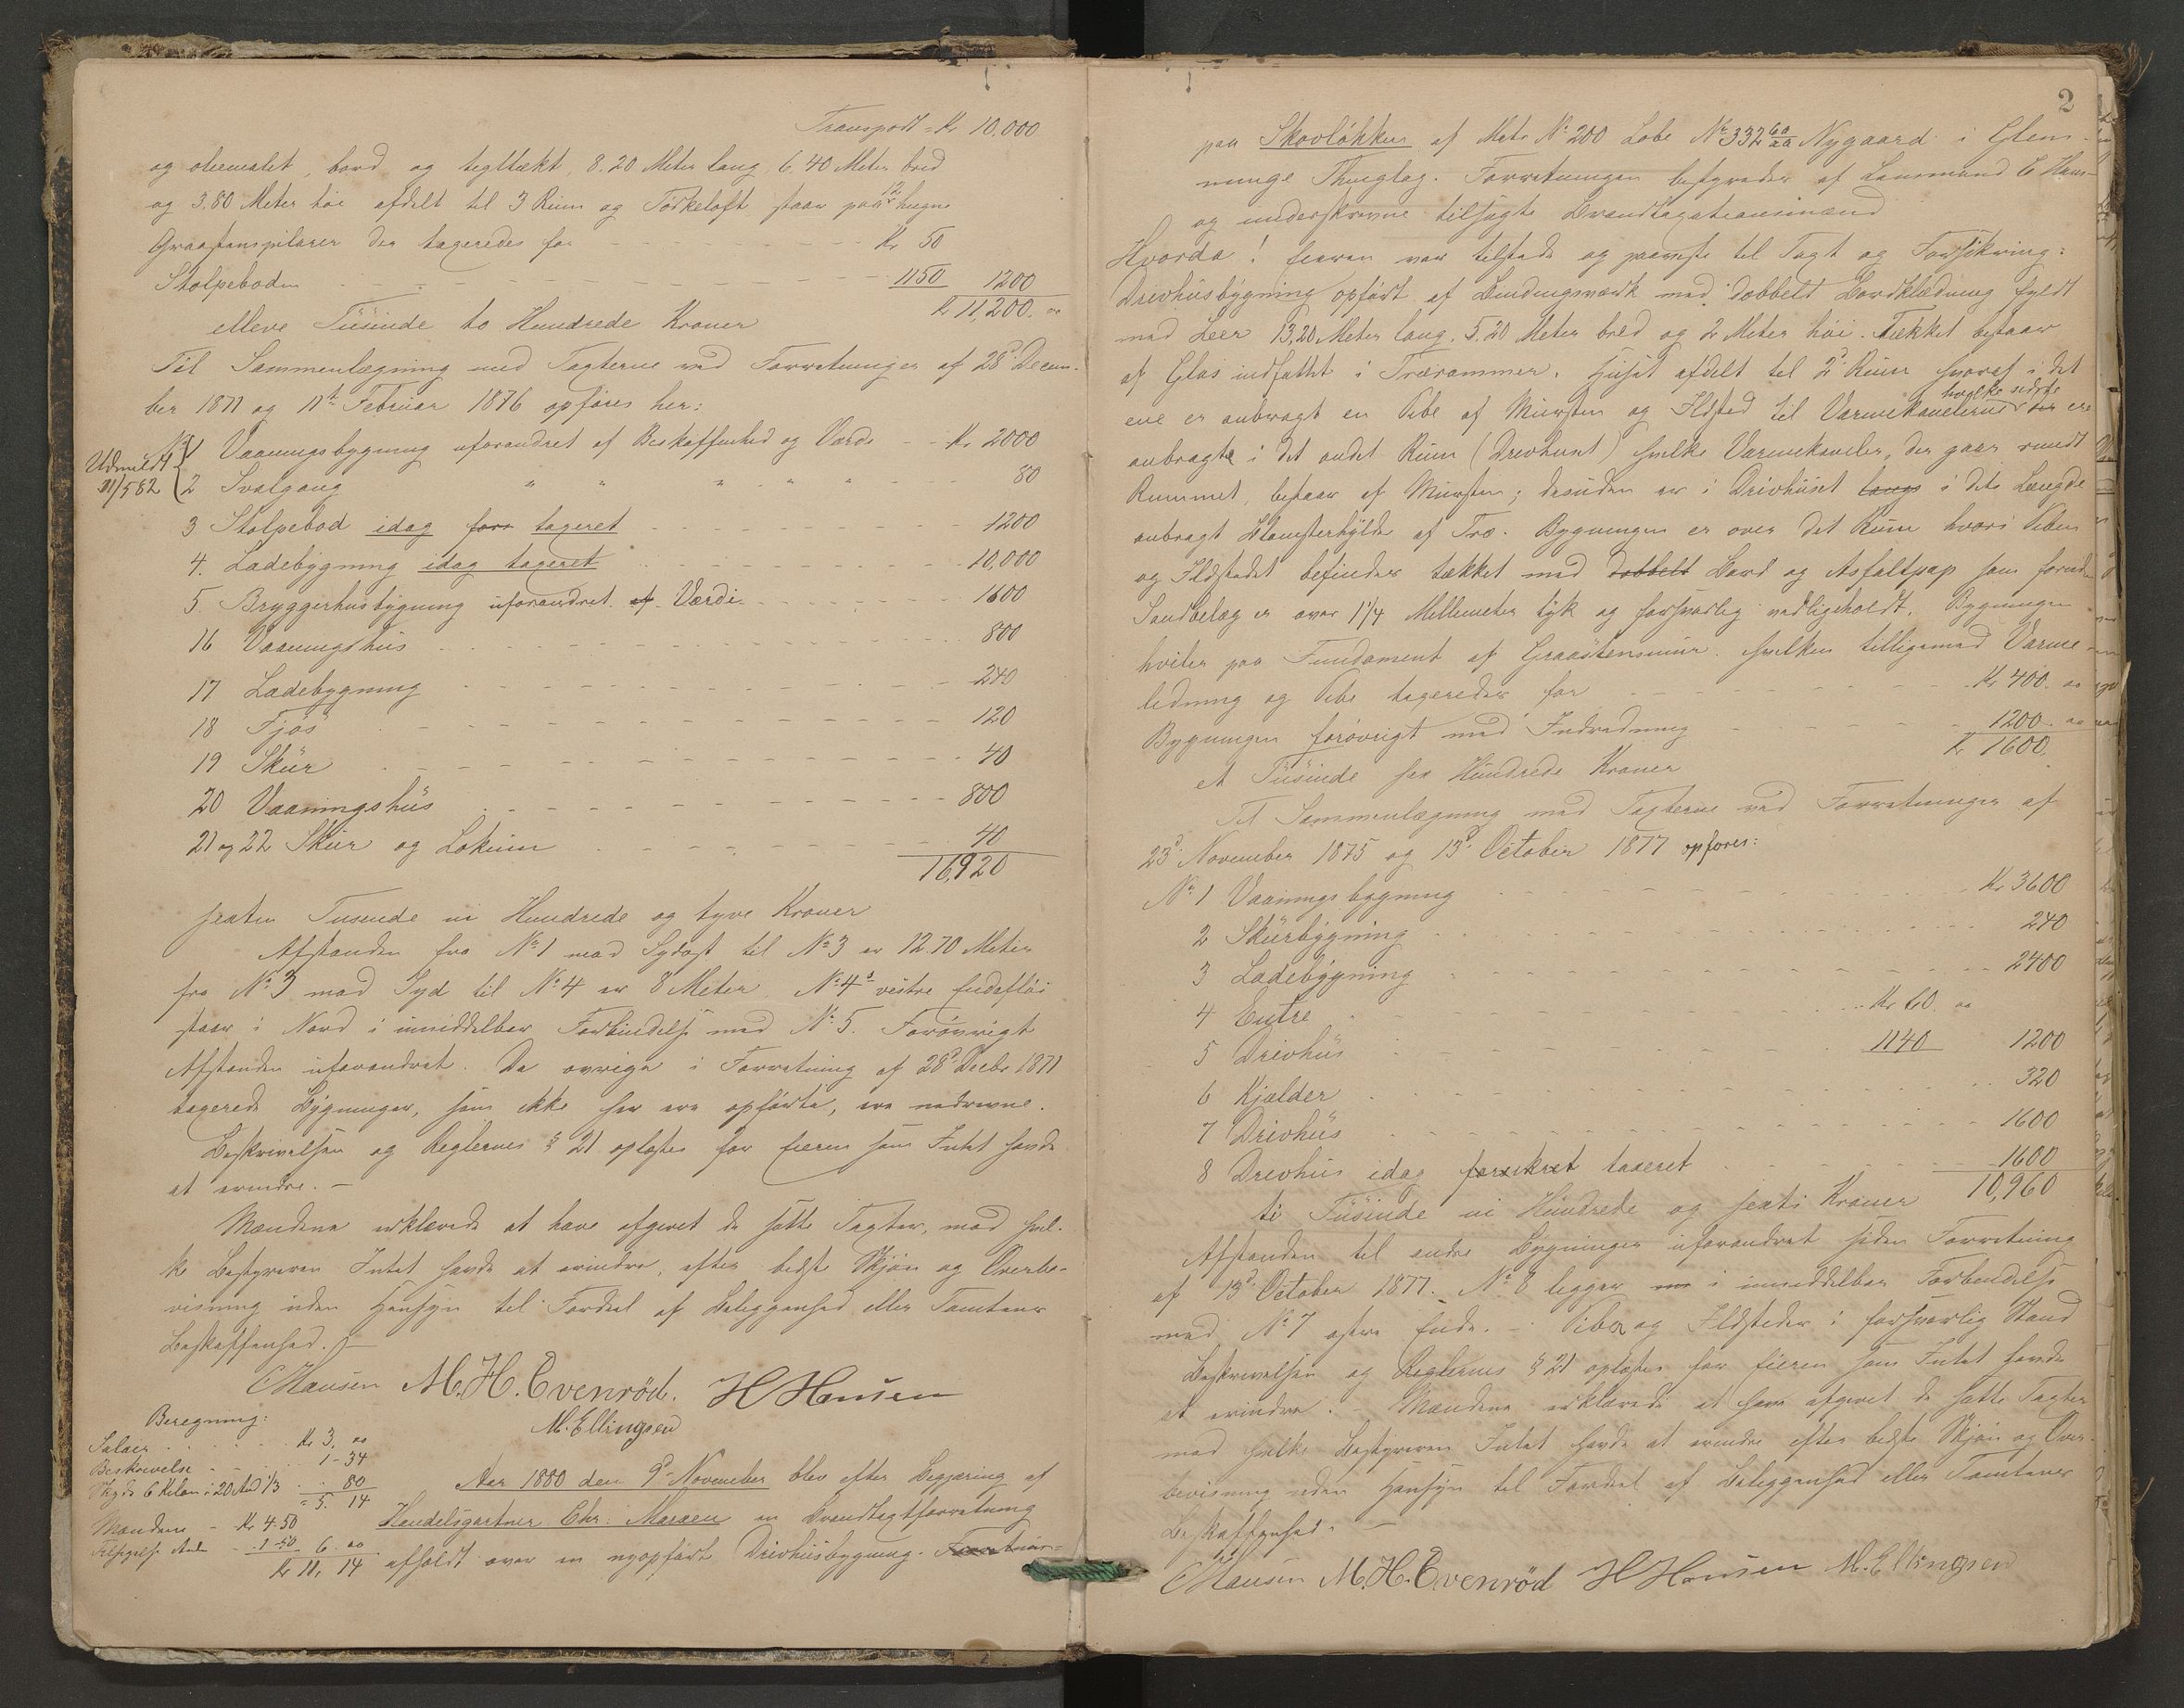 Transport = Kr 10,000
og oliemalet, bord og tegltækt, 8.20 Meter lang 6.40 Meter bred
og 3.80 Meter höi afdelt til 3 Rum og Törkeloft staar paa 12 hugne
Graastenspilarer der taxeredes for Kr 50
Stolpeboden 1150 1200
Kr 11,200. oo
elleve Tusinde to Hundrede Kroner
Til Sammenlægning med Taxterne ved Forretninger af 28d Decem-
ber 1871 og 11te Februar 1876 opføres her:
No 1 Vaaningsbygning uforandret af Beskaffenhed og Værdi Kr 2000
Udmeldt 31/5 82
2 Svalgang " " " " " 80
3 Stolpebod idag for taxeret 1200
4. Ladebygning idag taxeret 10,000
5. Bryggerhusbygning uforandret af Værdi 1600
16 Vaaningshus 800
17 Ladebygning 240
18 Fjös 120
19 Skur 40
20 Vaaningshus 800
21 og 22 Skur og Lokum 40
16,920
sexten Tusende ni Hundrede og tyve Kroner
Afstanden fra No 1 mod Sydost til No 3 er 12.70 Meter
fra No 3 mod Syd til No 4 er 8 Meter. No 4s vestre Endefløi
staar i Nord i umiddelbar Forbindelse med No 5. Forövrigt
Afstanden uforandret. De øvrige i Forretning af 28d Decbr 1871
taxerede Bygninger, som ikke her ere opförte, ere nedrevne.
Beskrivelsen og Reglernes § 21 oplæstes for Eieren som Intet havde
at erindre. —
Mændene erklærede at have afgivet de satte Taxter, mod hvil-
ke Bestyreren Intet havde at erindre, efter bedste Skjön og Overbe-
visning uden Hensyn til Fordeel af Beliggenhed eller Tomtens
Beskaffenhed. —
C Hansen M.H. Evenröd. H Hansen
M. Ellingsen
Beregning:
Salair Kr 3. oo
Beskrivelse 1-34
Skyds 6 Kilom: 20 Aad 1/3 80
= 5. 14
Mændene - Kr 4.50
1-50 6. oo
Kr 11. 14
Aar 1880 den 9de November blev efter Begjæring af
Handelsgartner Chr: Maraen en Brandtaxtforretning
afholdt over en nyopfört Drivhusbygning.
2
paa Skovløkken af Matr No 200 Løbe No 332 Nygaard i Glem-
minge Thinglag. Forretningen bestyredes af Lensmand C Hans-
og underskrevne tilsagte Brandtaxationsmænd
Hvorda! Eieren var tilstede og paaviste til Taxt og Forsikring:
Drivhusbygning opfört af Bindingsværk med dobbelt Bordklædning fyldt
med Leer 13,20 Meter lang, 5.20 Meter bred og 2 Meter höi. Tækket bestaar
af Glas indfattet i Trærammer. Huset afdelt til 2d Rum hvoraf i det
ene er anbragt en Pibe af Mursten og Ildsted til Varmekanelerne hvilke sidste der ere
anbragte i det andet Rum (Drivhuset) hvilke Varmekaneler, der gaar rundt
Rummet, bestaar af Mursten; desuden er i Drivhuset langs i dets Længde
anbragt Blomsterhylde af Træ. Bygningen er over det Rum hvori Piben
og Ildstedet befinder tækket med dobbelt Bord og Asfaltpap som foruden
Sandbelæg er over 1 1/4 Millemeter tyk og forsvarlig vedligeholdt. Bygningen
hviler paa Fundament af Graastensmur. hvilken tilligemed Varme-
ledning og Pibe taxeredes for Kr 400. oo
Bygningen forövrigt med Indredning 1200. oo
Kr 1600.
et Tusinde sex Hundrede Kroner
Til Sammenlægning med Taxterne ved Forretninger af
23d November 1875 og 13d October 1877 opføres:
No 1 Vaaningsbygning Kr 3600
2 Skurbygning 240
3 Ladebygning 2400
4 Entre Kr 60. oo
5 Drivhus 1140 1200
6 Kjælder 320
7 Drivhus 1600
8 Drivhus idag forsikret taxeret 1600
ti Tusinde ni Hundrede og sexti Kroner 10,960
Afstanden til andre Bygninger uforandret siden Forretning
af 13d October 1877. No 8 ligger i umiddelbar Forbindelse
med No 7 østre Ende. — Piber og Ildsteder i forsvarlig Stand
Beskrivelsen og Reglernes § 21 oplæstes for Eieren som Intet havde
at erindre. — Mændene erklærede at have afgivet de satte Taxter
mod hvilke Bestyreren Intet havde at erindre efter bedste Skjön og Over-
bevisning uden Hensyn til Fordeel af Beliggenhed eller Tomtens
Beskaffenhed. —
C Hansen M.H. Evenröd H Hansen M. Ellingsen